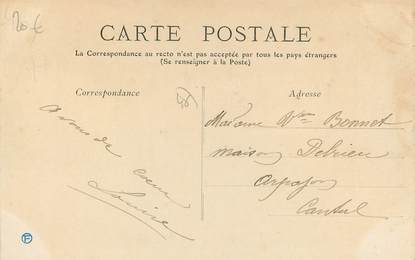 20 €
CARTE POSTALE
La Correspondance au recto n'est pas acceptée par tous les pays étrangers
(Se renseigner à la Poste)
Correspondance
Adresse
à vous de
coeur
Louise
Madame Vve Bonnet
maison Delrieu
arpajon
Cantal